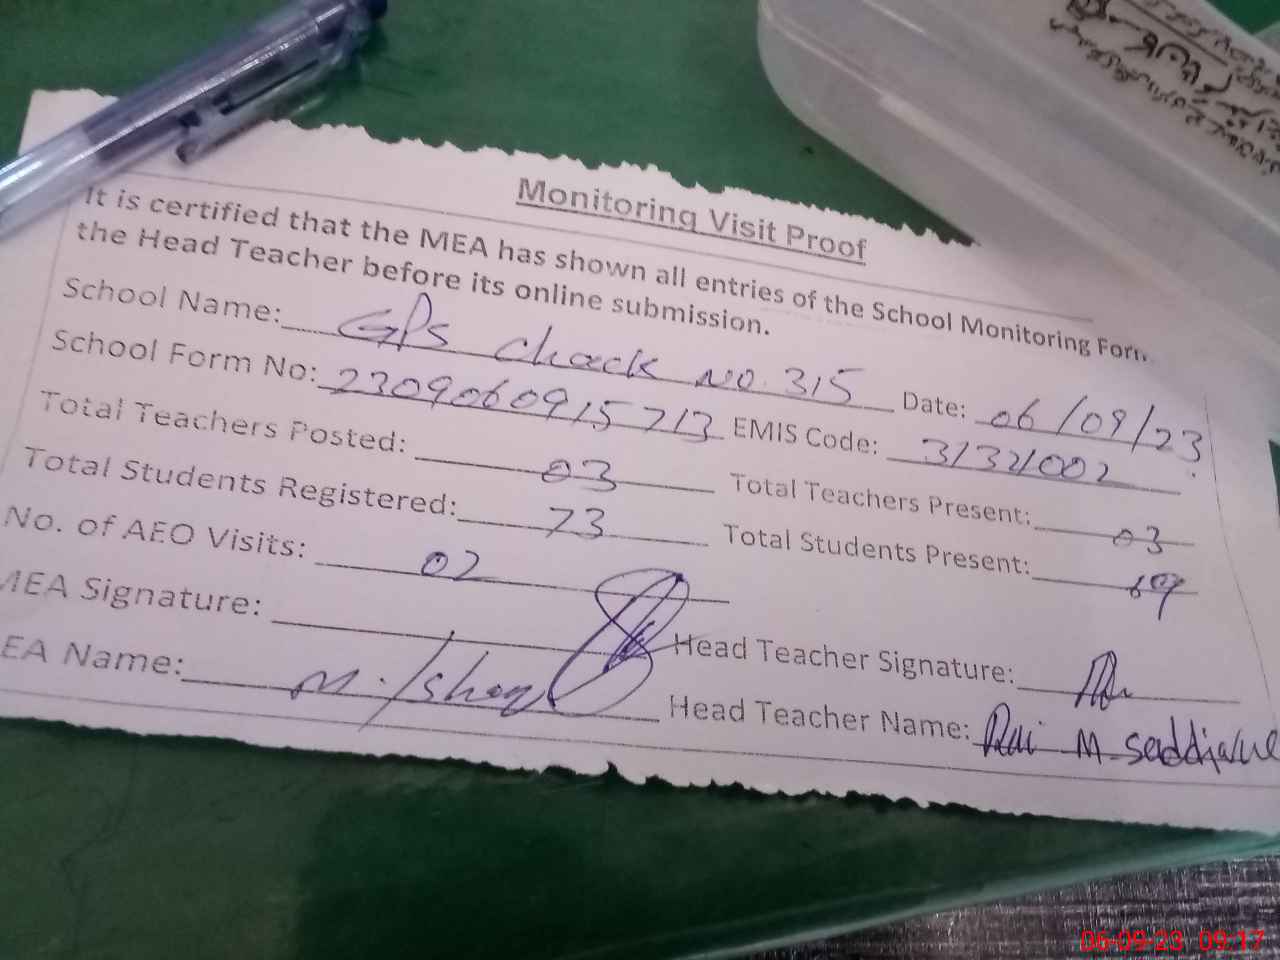 Monitoring Visit Proof
It is certified that the MEA has shown all entries of the School Monitoring Form
the Head Teacher before its online submission.
School Name: GPS Chack No. 315 Date: 06/09/23
School Form No: 2309060915713 EMIS Code: 31321002
Total Teachers Posted: 03 Total Teachers Present: 03
Total Students Registered: 73 Total Students Present: 69
No. of AEO Visits: 02
MEA Signature: Head Teacher Signature:
EA Name: M. Ishaq Head Teacher Name: Rai M
06-09-23 09:17